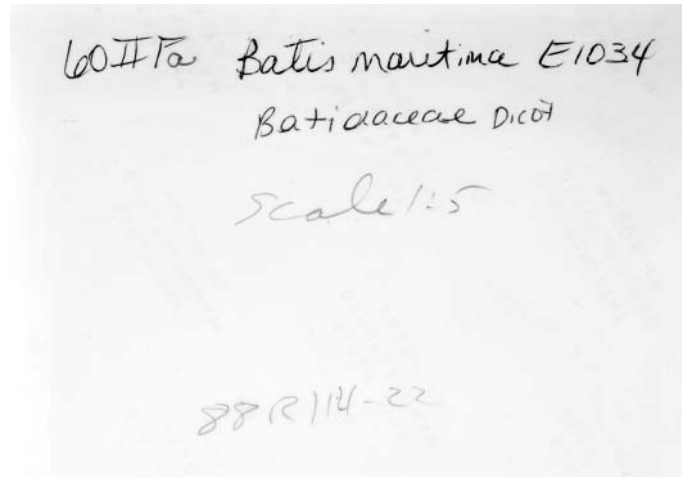 60 II Fa Batis maritima E1034
Batidaceae Dicot
Scale 1:5
88R114-22